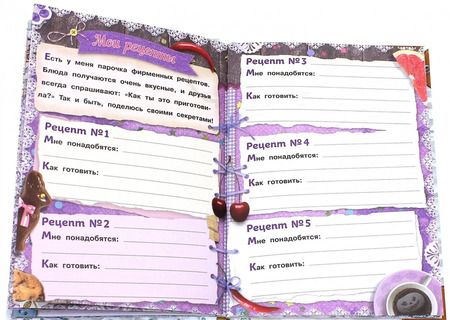 Мои рецепты
Есть у меня парочка фирменных рецептов.
Блюда получаются очень вкусные, и друзья
всегда спрашивают: «Как ты это приготови-
ла?» Так и быть, поделюсь своими секретами!
Рецепт №1
Мне понадобятся:
Как готовить:
Рецепт №2
Мне понадобятся:
Как готовить:
Рецепт №3
Мне понадобятся:
Как готовить:
Рецепт №4
Мне понадобятся:
Как готовить:
Рецепт №5
Мне понадобятся:
Как готовить: